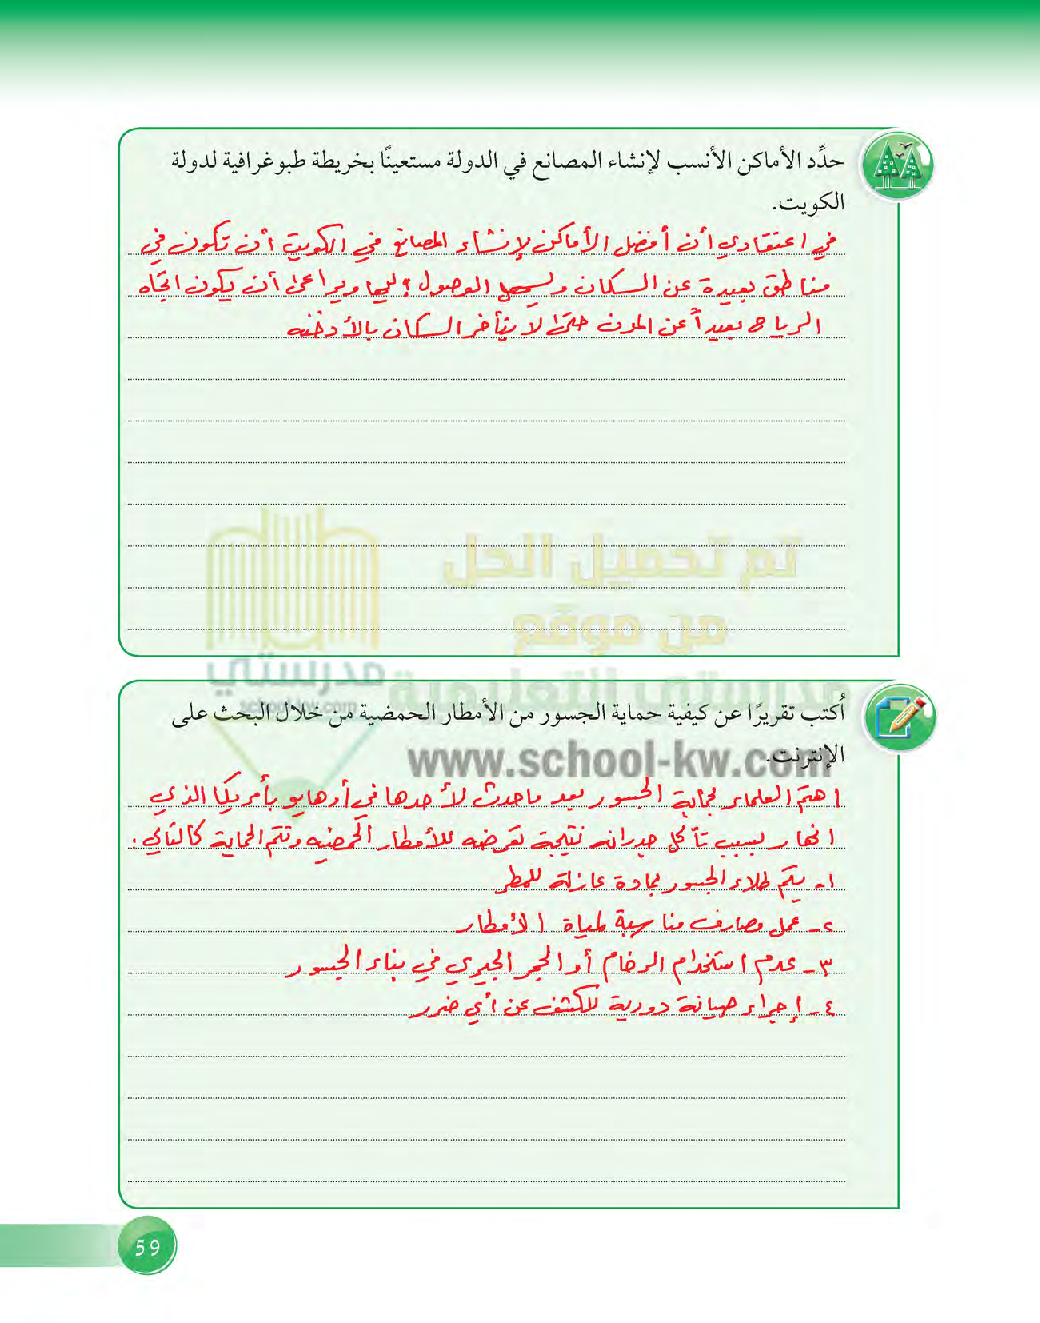 حدِّد الأماكن الأنسب لإنشاء المصانع في الدولة مستعينًا بخريطة طبوغرافية لدولة
الكويت.
في اعتقادي أن أفضل الأماكن لإنشاء المصانع في الكويت أن تكون في
مناطق بعيدة عن السكان ويسهل الوصول إليها ويراعى أن يكون اتجاه
الرياح بعيداً عن المدن حتى لا يتأخر السكان بالأدخنه
تم تحميل الحل
من موقع
مدرستي التعليمية
مدرستي
school-kw.com
أُكتب تقريرًا عن كيفية حماية الجسور من الأمطار الحمضية من خلال البحث على
الإنترنت.
www.school-kw.com
اهتم العلماء لحماية الجسور بعد ماحدث لأحدها في أوهايو بأمريكا الذي
انهار بسبب تآكل جدرانه نتيجة تعرضه للأمطار الحمضيه وتتم الحماية كالتالي.
١- يتم طلاء الجسور بمادة عازلة للمطر
٢- عمل مصارف مناسبة لمياة الأمطار
٣- عدم استخدام الرخام أو الحجر الجيري في بناء الجسور
٤- إجراء صيانة دورية للكشف عن أي ضرر
59